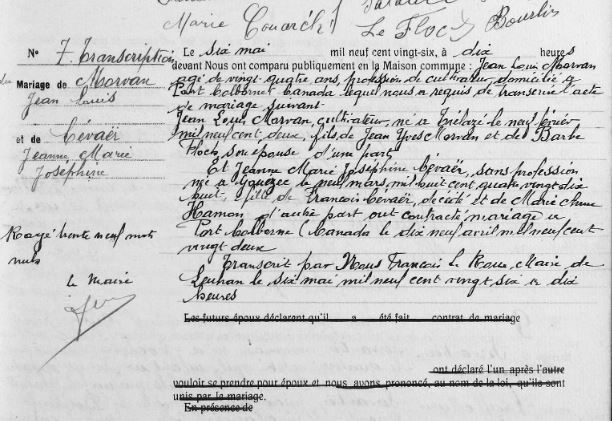 Marie Couarch
Le Floch Bourlès
N° 7. Transcription
Mariage de Morvan
Jean Louis
et de Cévaër
Jeanne Marie
Joséphine
Rayé trente neuf mots
nuls
Le Maire
Le six mai mil neuf cent vingt-six, à dix heures
devant Nous ont comparu publiquement en la Maison commune : Jean Louis Morvan
agé de vingt quatre ans, profession de cultivateur, domicilié à
Port Colborne Canada lequel nous a requis de transcrire l'acte
de mariage suivant
Jean Louis Morvan, cultivateur, né à le neuf février
mil neuf cent deux, fils de Jean Yves Morvan et de Barbe
Floch son épouse d'une part
Et Jeanne Marie Joséphine Cévaër, sans profession
née à Gouézec le neuf mars, mil huit cent quatre vingt dix
huit, fille de François Cévaër, décédé et de Marie Anne
Hamon d'autre part ont contracté mariage à
Port Colborne (Canada le dix neuf avril mil neuf cent
vingt deux
Transcrit par Nous François Le Maire de
Leuhan le six mai mil neuf cent vingt six à dix
heures
Les futurs époux déclarent qu'il a été fait contrat de mariage
ont déclaré l'un après l'autre
vouloir se prendre pour époux et nous avons prononcé, au nom de la loi, qu'ils sont
unis par le mariage.
En présence de